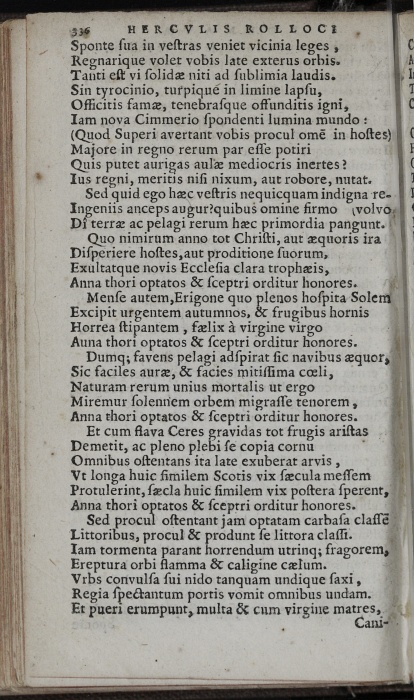 336 HERCVLIS ROLLOCI
Sponte ſua in veſtras veniet vicinia leges,
Regnarique volet vobis late exterus orbis.
Tanti eſt vi ſolidæ niti ad ſublimia laudis.
Sin tyrocinio, turpique in limine lapſu,
Officitis famæ, tenebraſque offunditis igni,
Iam nova Cimmerio ſpondenti lumina mundo:
(Quod Superi avertant vobis procul omē in hoſtes)
Majore in regno rerum par eſſe potiri
Quis putet aurigas aulæ mediocris inertes?
Ius regni, meritis niſi nixum, aut robore, nutat.
Sed quid ego hæc veſtris nequicquam indigna re-
Ingeniis anceps augur?quibus omine firmo (volvo
Di terræ ac pelagi rerum hæc primordia pangunt.
Quo nimirum anno tot Chriſti, aut æquoris ira
Diſperiere hoſtes,aut proditione ſuorum,
Exultatque novis Eccleſia clara trophæis,
Anna thori optatos & ſceptri orditur honores.
Menſe autem,Erigone quo plenos hoſpita Solem
Excipit urgentem autumnos, & frugibus hornis
Horrea ſtipantem, fælix à virgine virgo
Anna thori optatos & ſceptri orditur honores.
Dumq; favens pelagi adſpirat ſic navibus æquor,
Sic faciles auræ, & facies mitiſſima cœli,
Naturam rerum unius mortalis ut ergo
Miremur ſolennem orbem migraſſe tenorem,
Anna thori optatos & ſceptri orditur honores.
Et cum flava Ceres gravidas tot frugis ariſtas
Demetit, ac pleno plebi ſe copia cornu
Omnibus oſtentans ita late exuberat arvis,
Vt longa huic ſimilem Scotis vix ſæcula meſſem
Protulerint, ſæcla huic ſimilem vix poſtera ſperent,
Anna thori optatos & ſceptri orditur honores.
Sed procul oſtentant jam optatam carbaſa claſſē
Littoribus, procul & produnt ſe littora claſſi.
Iam tormenta parant horrendum utrinq; fragorem,
Ereptura orbi flamma & caligine cælum.
Vrbs convulſa ſui nido tanquam undique ſaxi,
Regia ſpectantum portis vomit omnibus undam.
Et pueri erumpunt, multa & cum virgine matres,
Cani-